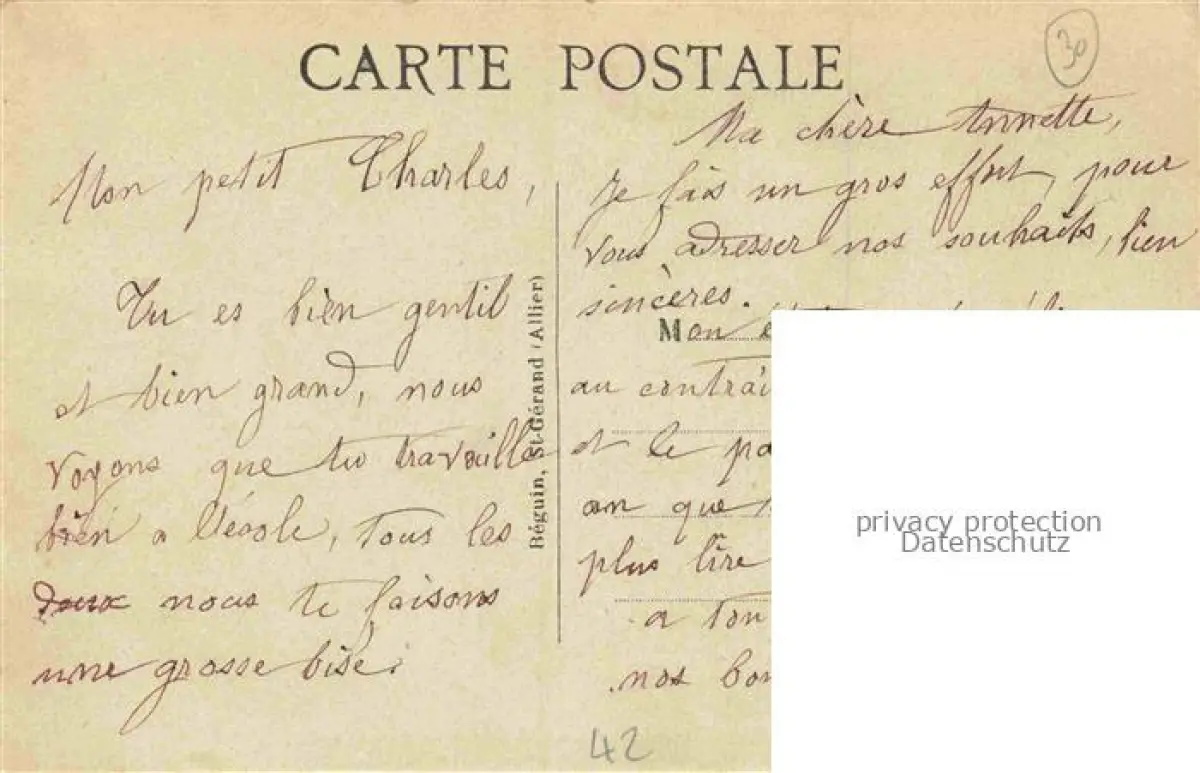 CARTE POSTALE
30
Mon petit Charles,
Tu es bien gentil
et bien grand, nous
voyons que tu travailles
bien a l'école, tous les
deux nous te faisons
une grosse bise.
Béguin, St-Gérand (Allier)
Ma chère Annette,
Je fais un gros effort, pour
vous adresser nos souhaits, bien
sincères.
Mon
au contrai
et le pa
an que
plus lire
a ton
nos bon
42
privacy protection
Datenschutz